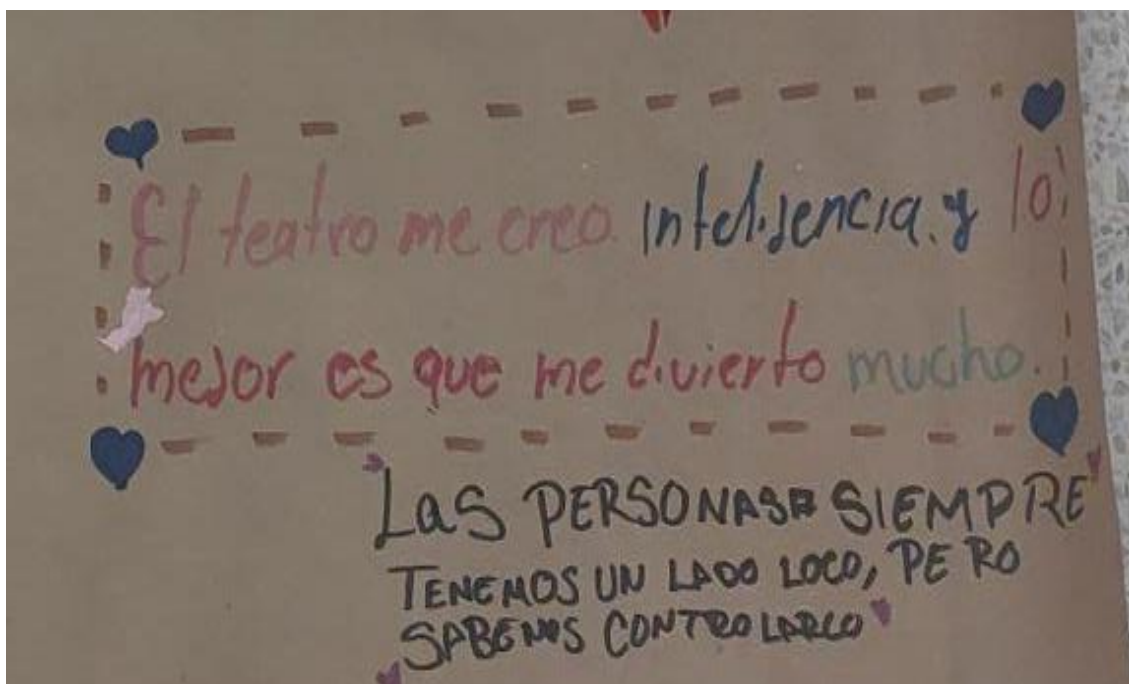 El teatro me creo inteligencia. y lo
mejor es que me divierto mucho.
"LAS PERSONAS SIEMPRE
TENEMOS UN LADO LOCO, PERO
SABEMOS CONTROLARLO"